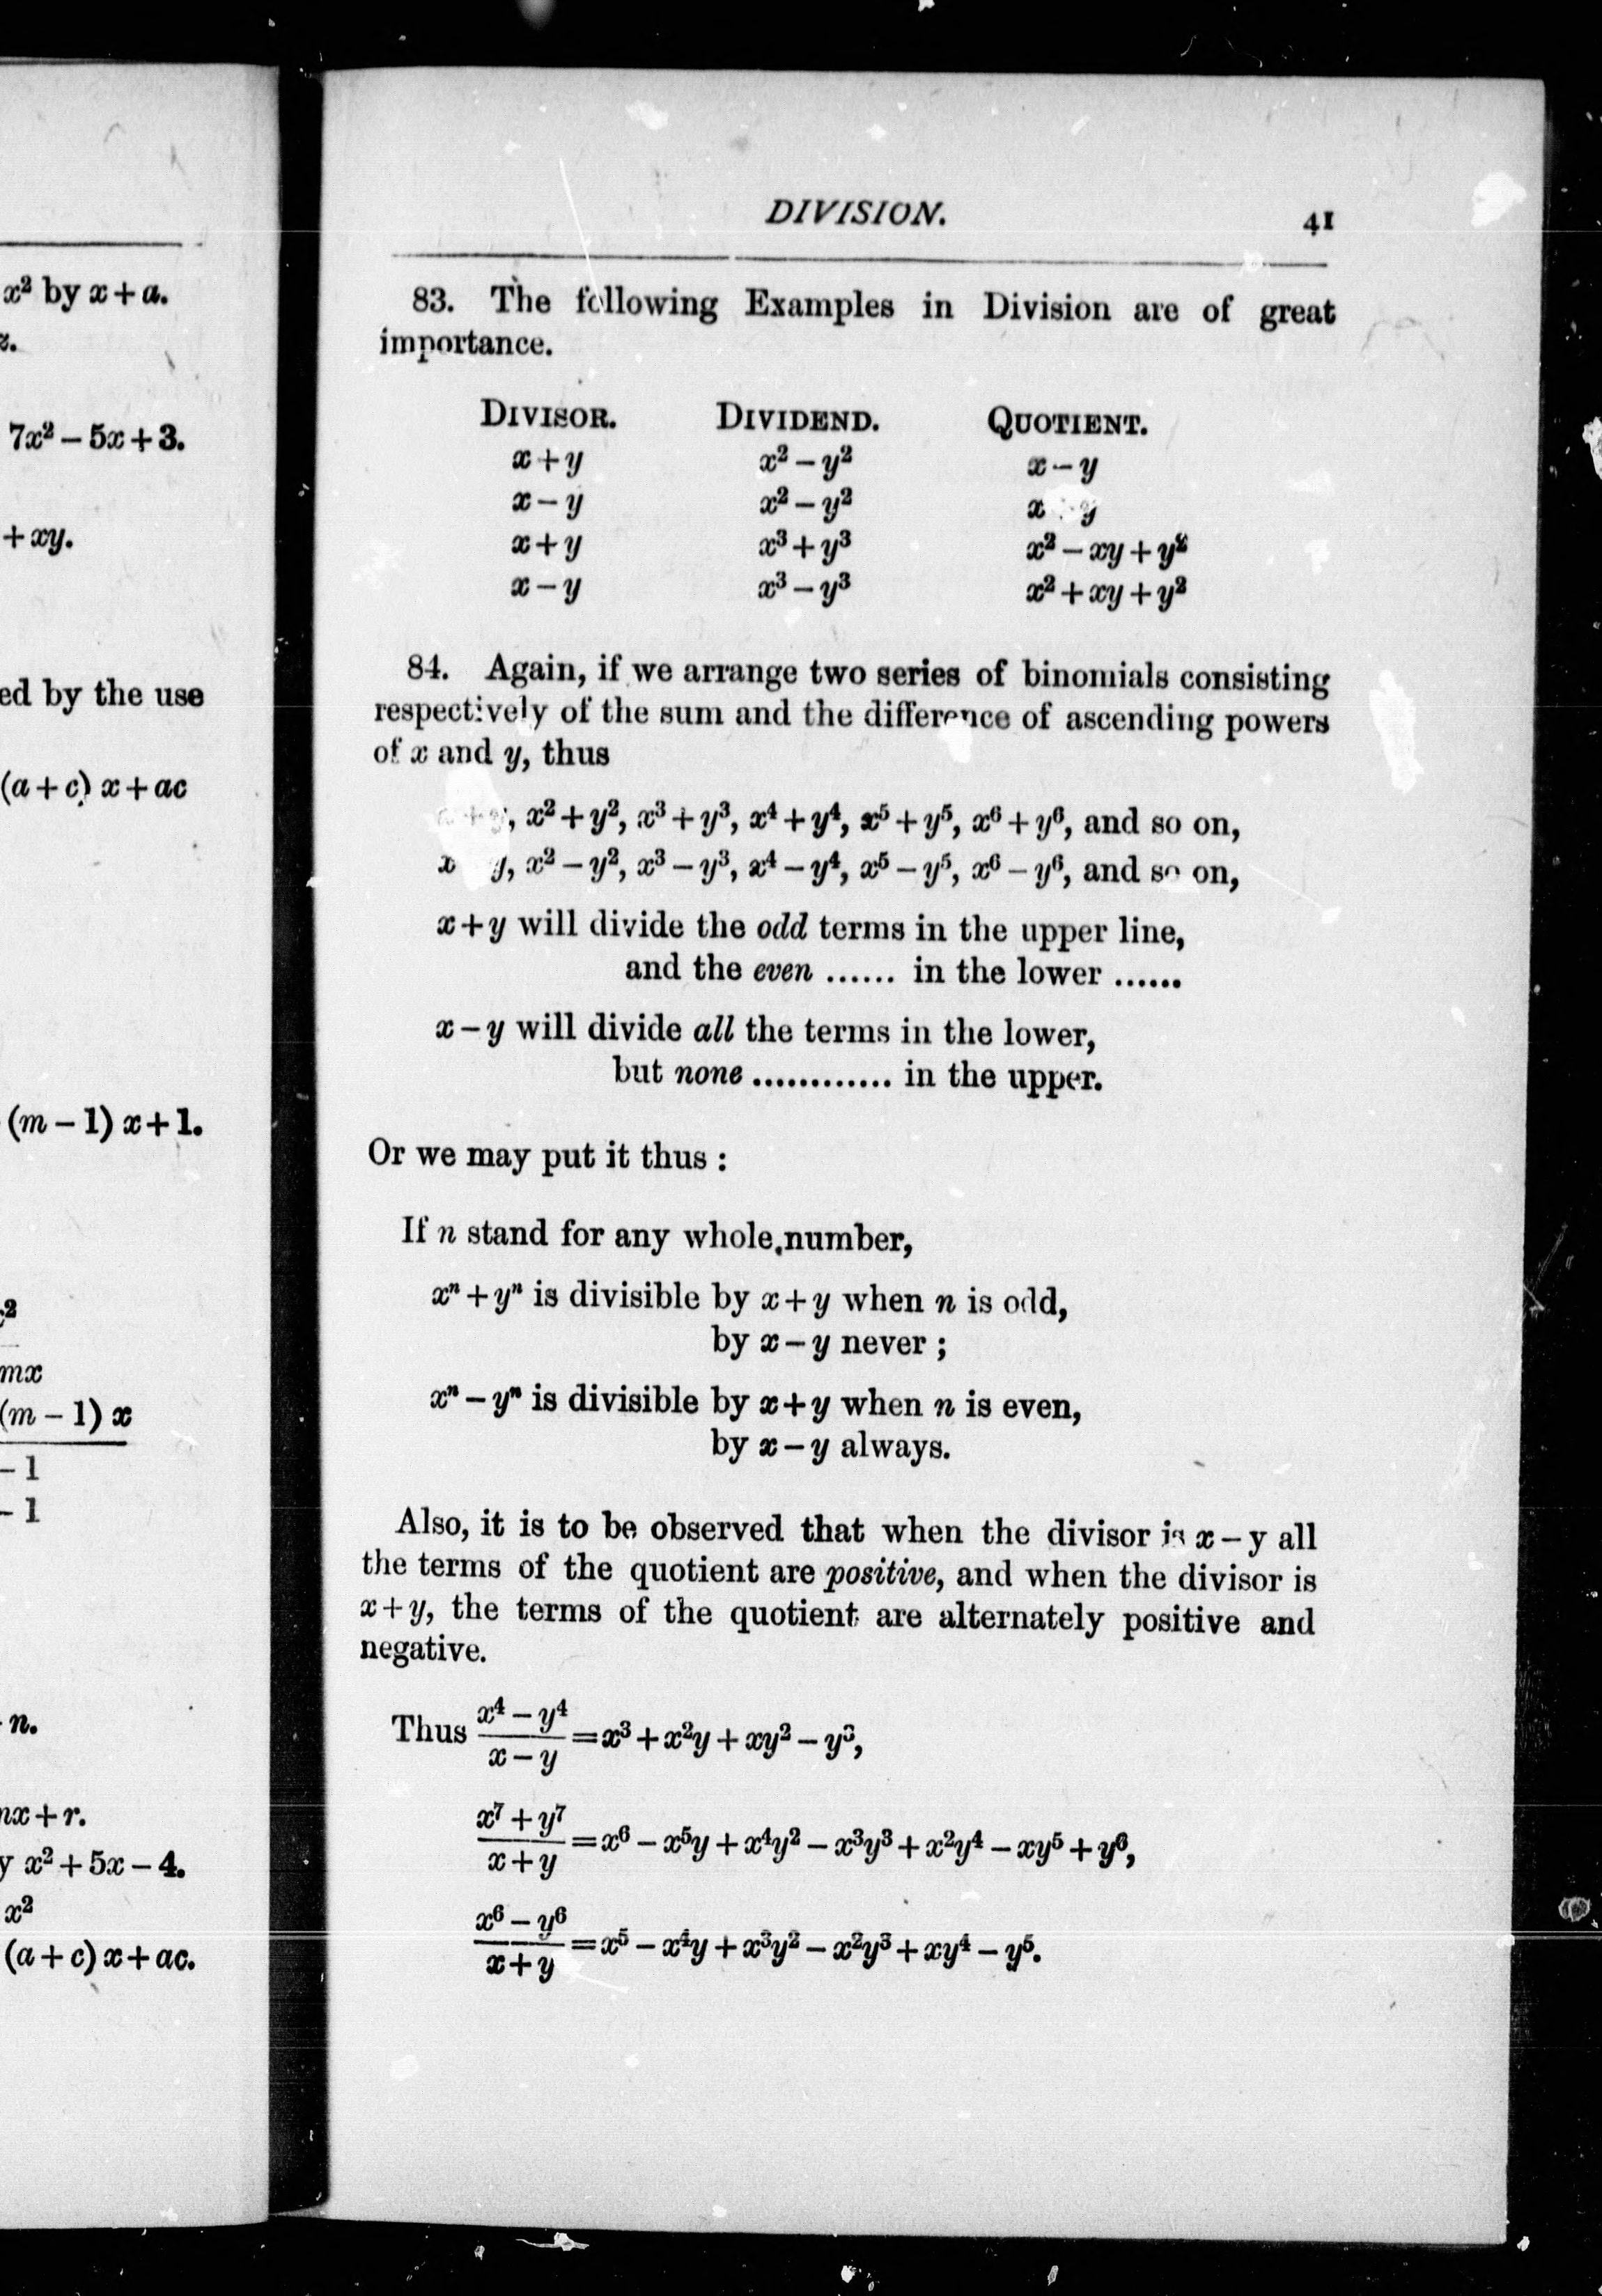 x² by x + a.
z.
7x² – 5x + 3.
+ xy.
ed by the use
(a + c) x + ac
(m – 1) x + 1.
2
mx
(m – 1) x
– 1
– 1
n.
mx + r.
y x² + 5x – 4.
x²
(a + c) x + ac.
DIVISION. 41
83. The following Examples in Division are of great
importance.
DIVISOR. DIVIDEND. QUOTIENT.
x + y x² – y² x – y
x – y x² – y² x y
x + y x³ + y³ x² – xy + y²
x – y x³ – y³ x² + xy + y²
84. Again, if we arrange two series of binomials consisting
respectively of the sum and the difference of ascending powers
of x and y, thus
x + y, x² + y², x³ + y³, x⁴ + y⁴, x⁵ + y⁵, x⁶ + y⁶, and so on,
x y, x² – y², x³ – y³, x⁴ – y⁴, x⁵ – y⁵, x⁶ – y⁶, and so on,
x + y will divide the odd terms in the upper line,
and the even ...... in the lower ......
x – y will divide all the terms in the lower,
but none ............ in the upper.
Or we may put it thus :
If n stand for any whole number,
xⁿ + yⁿ is divisible by x + y when n is odd,
by x – y never ;
xⁿ – yⁿ is divisible by x + y when n is even,
by x – y always.
Also, it is to be observed that when the divisor is x – y all
the terms of the quotient are positive, and when the divisor is
x + y, the terms of the quotient are alternately positive and
negative.
Thus (x⁴ – y⁴)/(x – y) = x³ + x²y + xy² – y³,
(x⁷ + y⁷)/(x + y) = x⁶ – x⁵y + x⁴y² – x³y³ + x²y⁴ – xy⁵ + y⁶,
(x⁶ – y⁶)/(x + y) = x⁵ – x⁴y + x³y² – x²y³ + xy⁴ – y⁵.